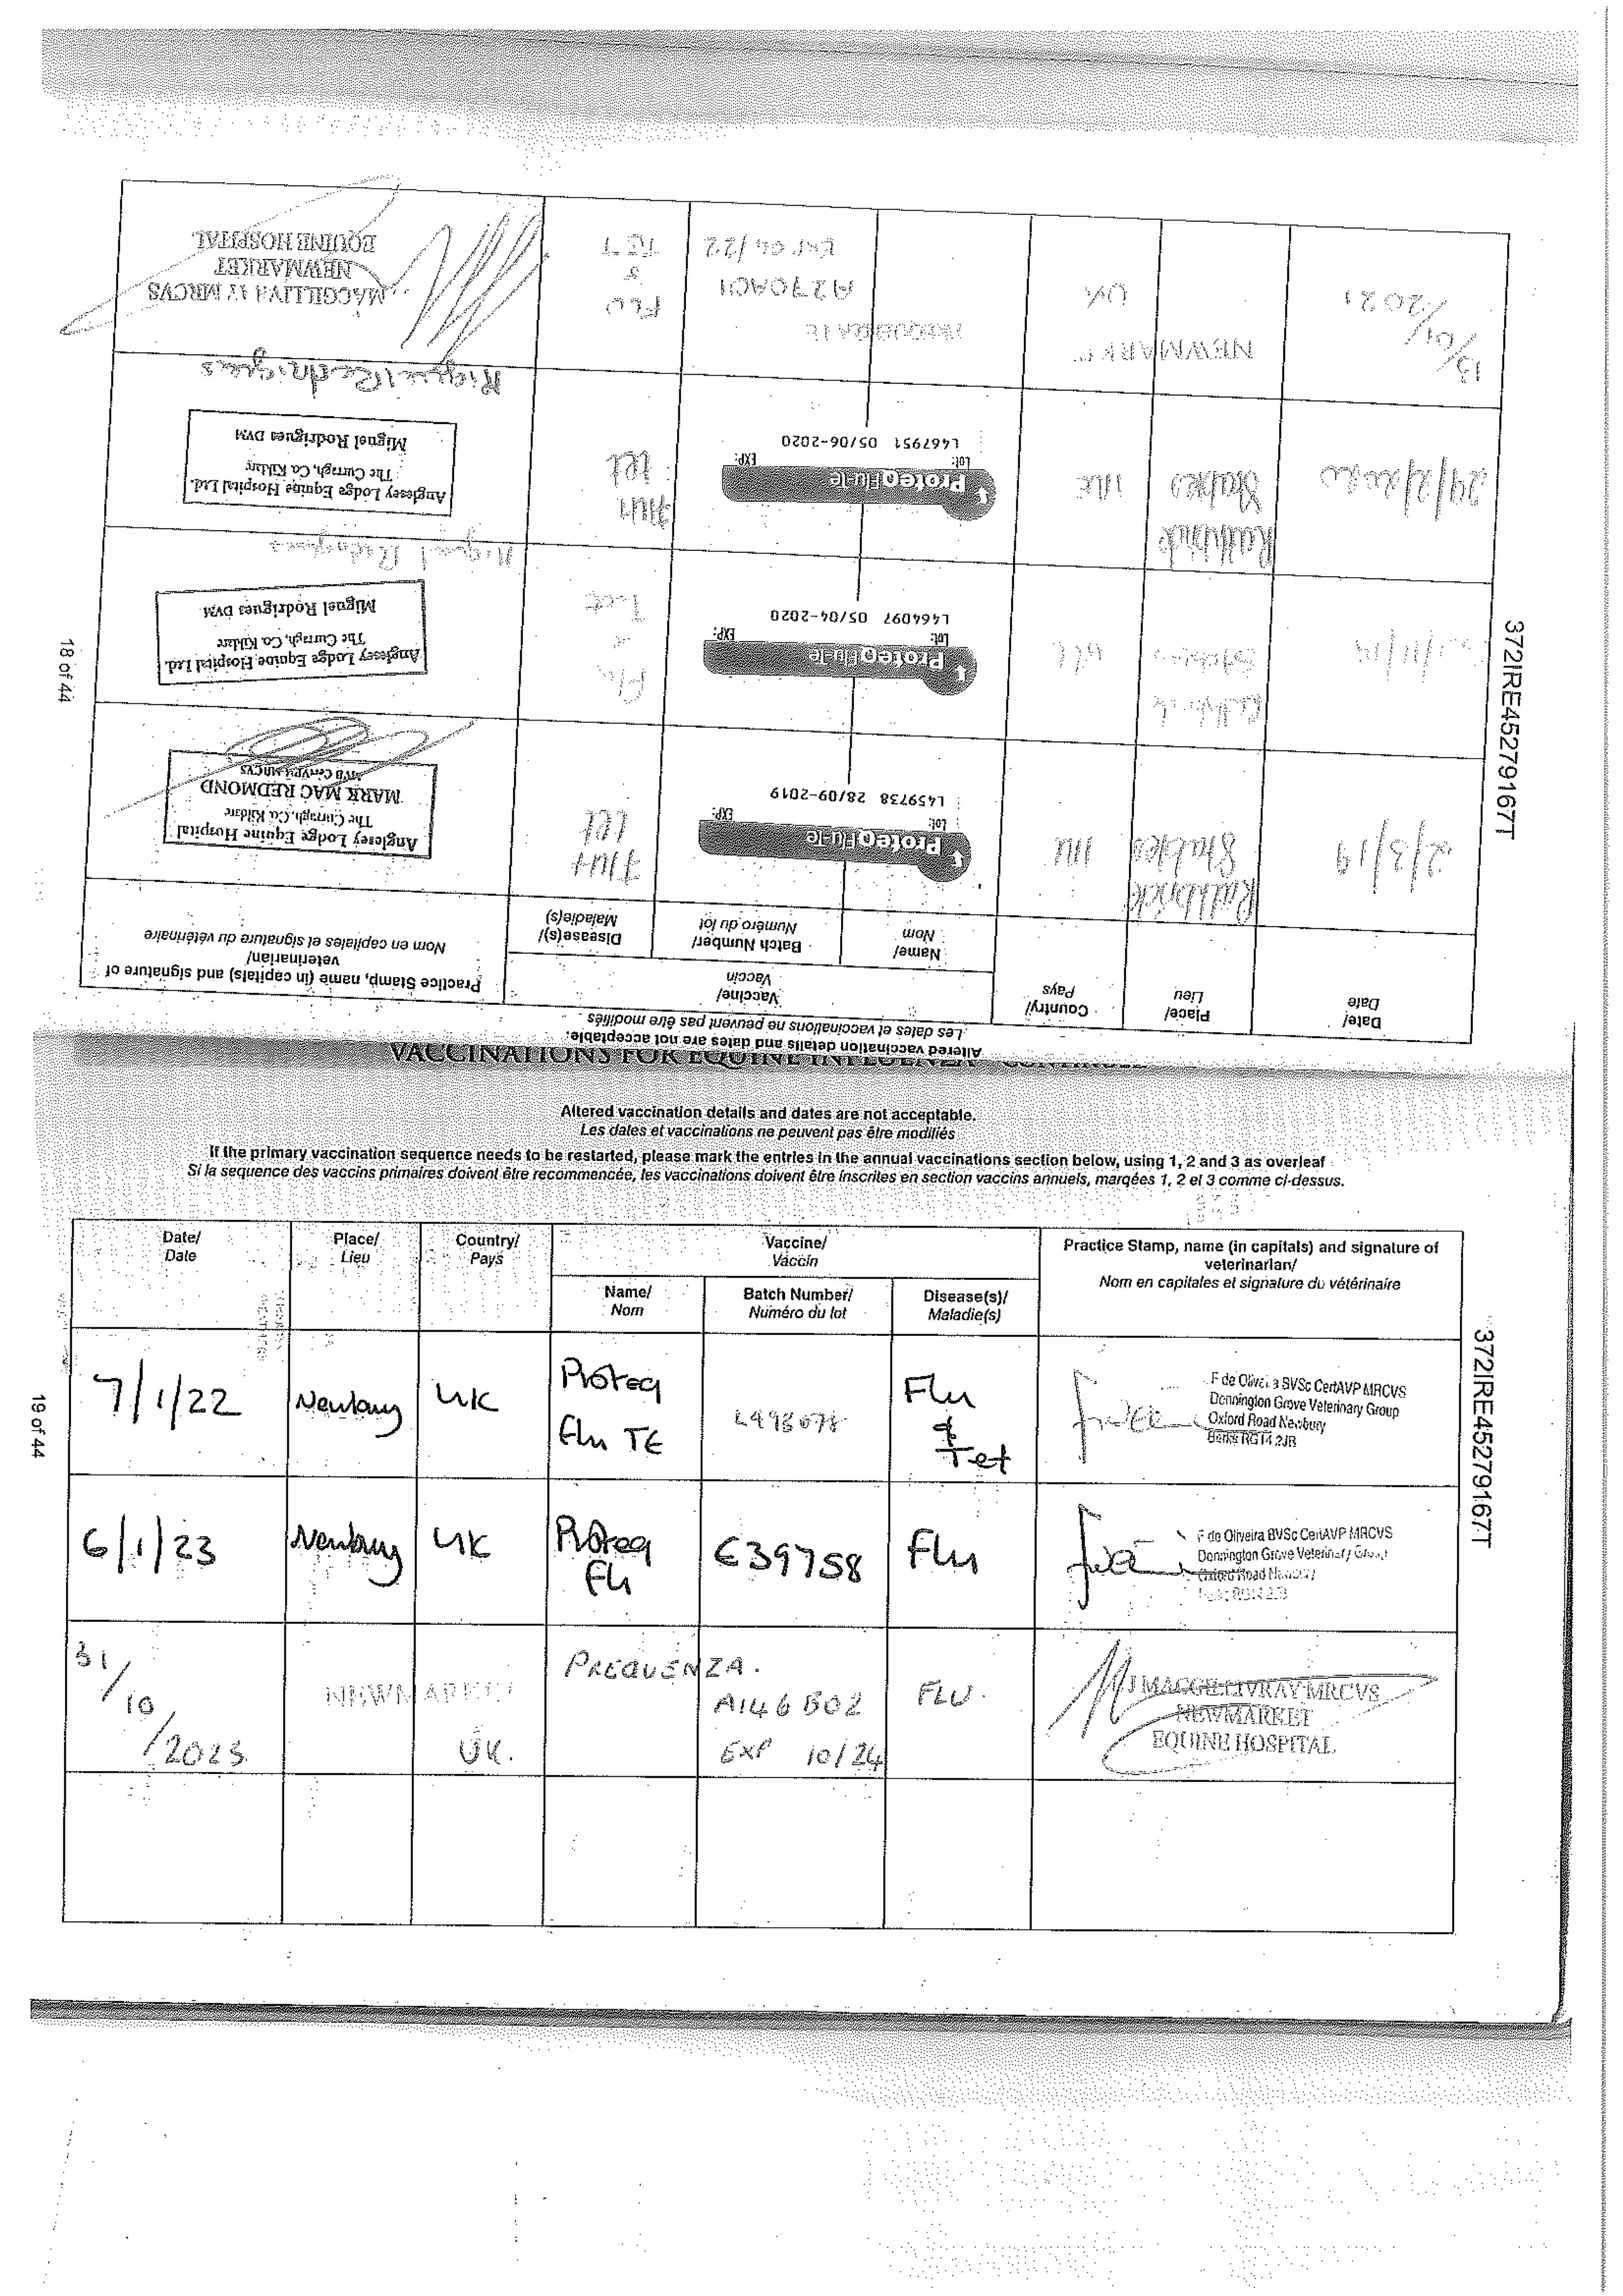 Altered vaccination details and dates are not acceptable.
Les dates et vaccinations ne peuvent pas être modifiés
Date/
Date
Place/
Lieu
Country/
Pays
Vaccine/
Vaccin
Name/
Nom
Batch Number/
Numéro du lot
Disease(s)/
Maladie(s)
Practice Stamp, name (in capitals) and signature of
veterinarian/
Nom en capitales et signature du vétérinaire
2/3/19
Rathbride
Stables
ProteqFlu-Te
Lot: EXP:
L459738 28/09-2019
Flu+
tet
Anglesey Lodge Equine Hospital
The Curragh, Co. Kildare
MARK MAC REDMOND
Stables
ProteqFlu-Te
Lot: EXP:
L464097 05/04-2020
Flu
Tet
Anglesey Lodge Equine Hospital Ltd.
The Curragh, Co. Kildare
Miguel Rodrigues DVM
Miguel Rodrigues
29/2/2020
Rathbride
Stables
ProteqFlu-Te
Lot: EXP:
L467951 05/06-2020
Flu+
tet
Anglesey Lodge Equine Hospital Ltd.
The Curragh, Co. Kildare
Miguel Rodrigues DVM
Miguel Rodrigues
13/01/2021
UK
A270A01
FLU
&
TET
MRCVS
NEWMARKET
EQUINE HOSPITAL
18 of 44
372IRE45279167T
VACCINATIONS FOR EQUINE
Altered vaccination details and dates are not acceptable.
Les dates et vaccinations ne peuvent pas être modifiés
If the primary vaccination sequence needs to be restarted, please mark the entries in the annual vaccinations section below, using 1, 2 and 3 as overleaf
Si la sequence des vaccins primaires doivent être recommencée, les vaccinations doivent être inscrites en section vaccins annuels, marqées 1, 2 et 3 comme ci-dessus.
Date/
Date
Place/
Lieu
Country/
Pays
Vaccine/
Vaccin
Name/
Nom
Batch Number/
Numéro du lot
Disease(s)/
Maladie(s)
Practice Stamp, name (in capitals) and signature of
veterinarian/
Nom en capitales et signature du vétérinaire
7/1/22
Newbury
UK
Proteq
Flu TE
Flu
&
Tet
F de Oliveira BVSc CertAVP MRCVS
Donnington Grove Veterinary Group
Oxford Road Newbury
Berks RG14 2JR
6/1/23
Newbury
UK
Proteq
Flu
E39758
Flu
F de Oliveira BVSc CertAVP MRCVS
Donnington Grove Veterinary Group
Oxford Road
31/10/2023
NEWMARKET
UK.
PREQUENZA.
A146B02
EXP 10/24
FLU.
J MACGILLIVRAY MRCVS
NEWMARKET
EQUINE HOSPITAL
19 of 44
372IRE45279167T